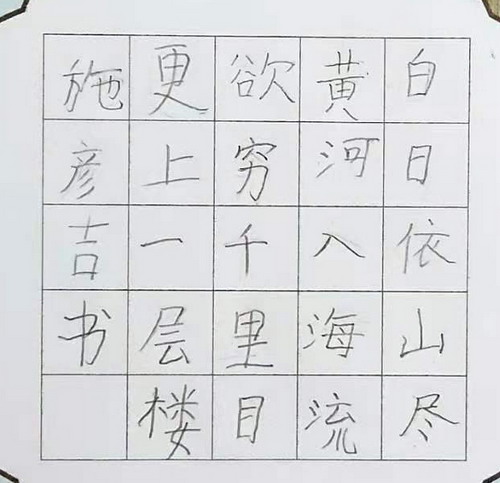 白日依山尽
黄河入海流
欲穷千里目
更上一层楼
施彦吉书